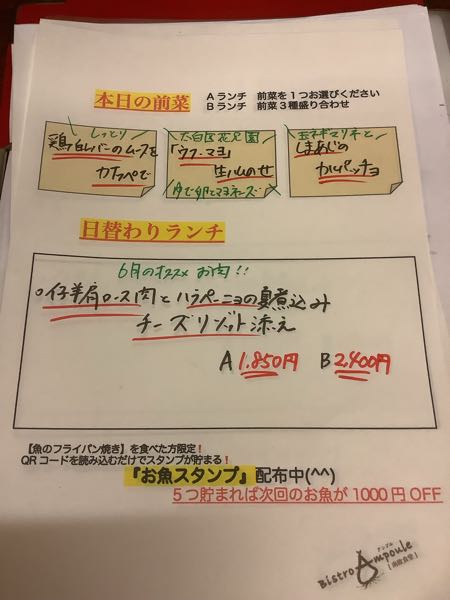 本日の前菜
Aランチ 前菜を1つお選びください
Bランチ 前菜3種盛り合わせ
しっとり
鶏白レバーのムースを
カナッペで
太白区花兄園
「ウフ・マヨ」
生ハムのせ
ゆで卵とマヨネーズ
玉ネギマリネと
しまあじの
カルパッチョ
日替わりランチ
6月のオススメ お肉!!
○仔羊肩ロース肉とハラペーニョの煮込み
チーズリゾット添え
A 1.850円 B 2.400円
【魚のフライパン焼き】を食べた方限定!
QRコードを読み込むだけでスタンプが貯まる!
『お魚スタンプ』配布中(^^)
5つ貯まれば次回のお魚が1000円OFF
アンプル
Bistro Ampoule